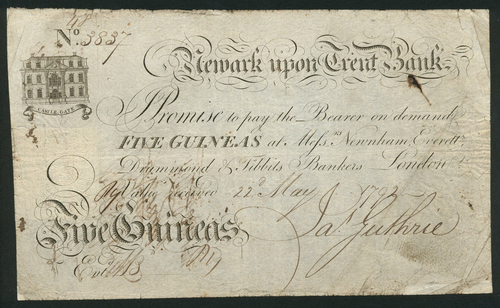 No. 3837
Newark upon Trent Bank
CASTLE GATE
I Promise to pay the Bearer on demand
FIVE GUINEAS at Messrs. Newnham, Everett,
Drummond & Tibbits Bankers London
received 22d May
Five Guineas
Jas. Guthrie
Entd.